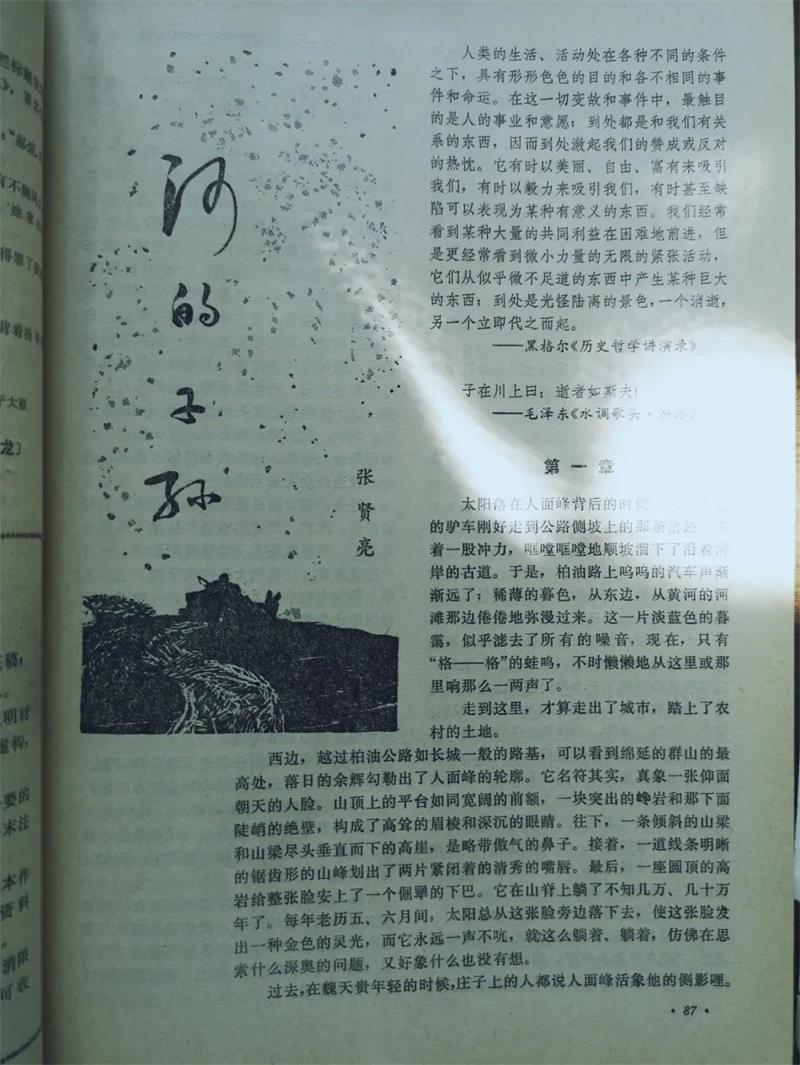 河的子孙
张贤亮
人类的生活、活动处在各种不同的条件
之下，具有形形色色的目的和各不相同的事
件和命运。在这一切变故和事件中，最触目
的是人的事业和意愿；到处都是和我们有关
系的东西，因而到处激起我们的赞成或反对
的热忱。它有时以美丽、自由、富有来吸引
我们，有时以毅力来吸引我们，有时甚至缺
陷可以表现为某种有意义的东西。我们经常
看到某种大量的共同利益在困难地前进，但
是更经常看到微小力量的无限的紧张活动，
它们从似乎微不足道的东西中产生某种巨大
的东西；到处是光怪陆离的景色，一个消逝，
另一个立即代之而起。
——黑格尔《历史哲学讲演录》
子在川上曰：逝者如斯夫！
——毛泽东《水调歌头·游泳》
第一章
太阳落在人面峰背后的时候
的驴车刚好走到公路侧坡上的那条
着一股冲力，哐嘡哐嘡地顺坡溜下了沿着河
岸的古道。于是，柏油路上呜呜的汽车声渐
渐远了；稀薄的暮色，从东边，从黄河的河
滩那边倦倦地弥漫过来。这一片淡蓝色的暮
霭，似乎滤去了所有的噪音，现在，只有
“格——格”的蛙鸣，不时懒懒地从这里或那
里响那么一两声了。
走到这里，才算走出了城市，踏上了农
村的土地。
西边，越过柏油公路如长城一般的路基，可以看到绵延的群山的最
高处，落日的余辉勾勒出了人面峰的轮廓。它名符其实，真象一张仰面
朝天的人脸。山顶上的平台如同宽阔的前额，一块突出的巉岩和那下面
陡峭的绝壁，构成了高耸的眉棱和深沉的眼睛。往下，一条倾斜的山梁
和山梁尽头垂直而下的高崖，是略带傲气的鼻子。接着，一道线条明晰
的锯齿形的山峰划出了两片紧闭着的清秀的嘴唇。最后，一座圆顶的高
岩给整张脸安上了一个倔犟的下巴。它在山脊上躺了不知几万、几十万
年了。每年老历五、六月间，太阳总从这张脸旁边落下去，使这张脸发
出一种金色的灵光，而它永远一声不吭，就这么躺着、躺着，仿佛在思
索什么深奥的问题，又好象什么也没有想。
过去，在魏天贵年轻的时候，庄子上的人都说人面峰活象他的侧影哩。
·87·